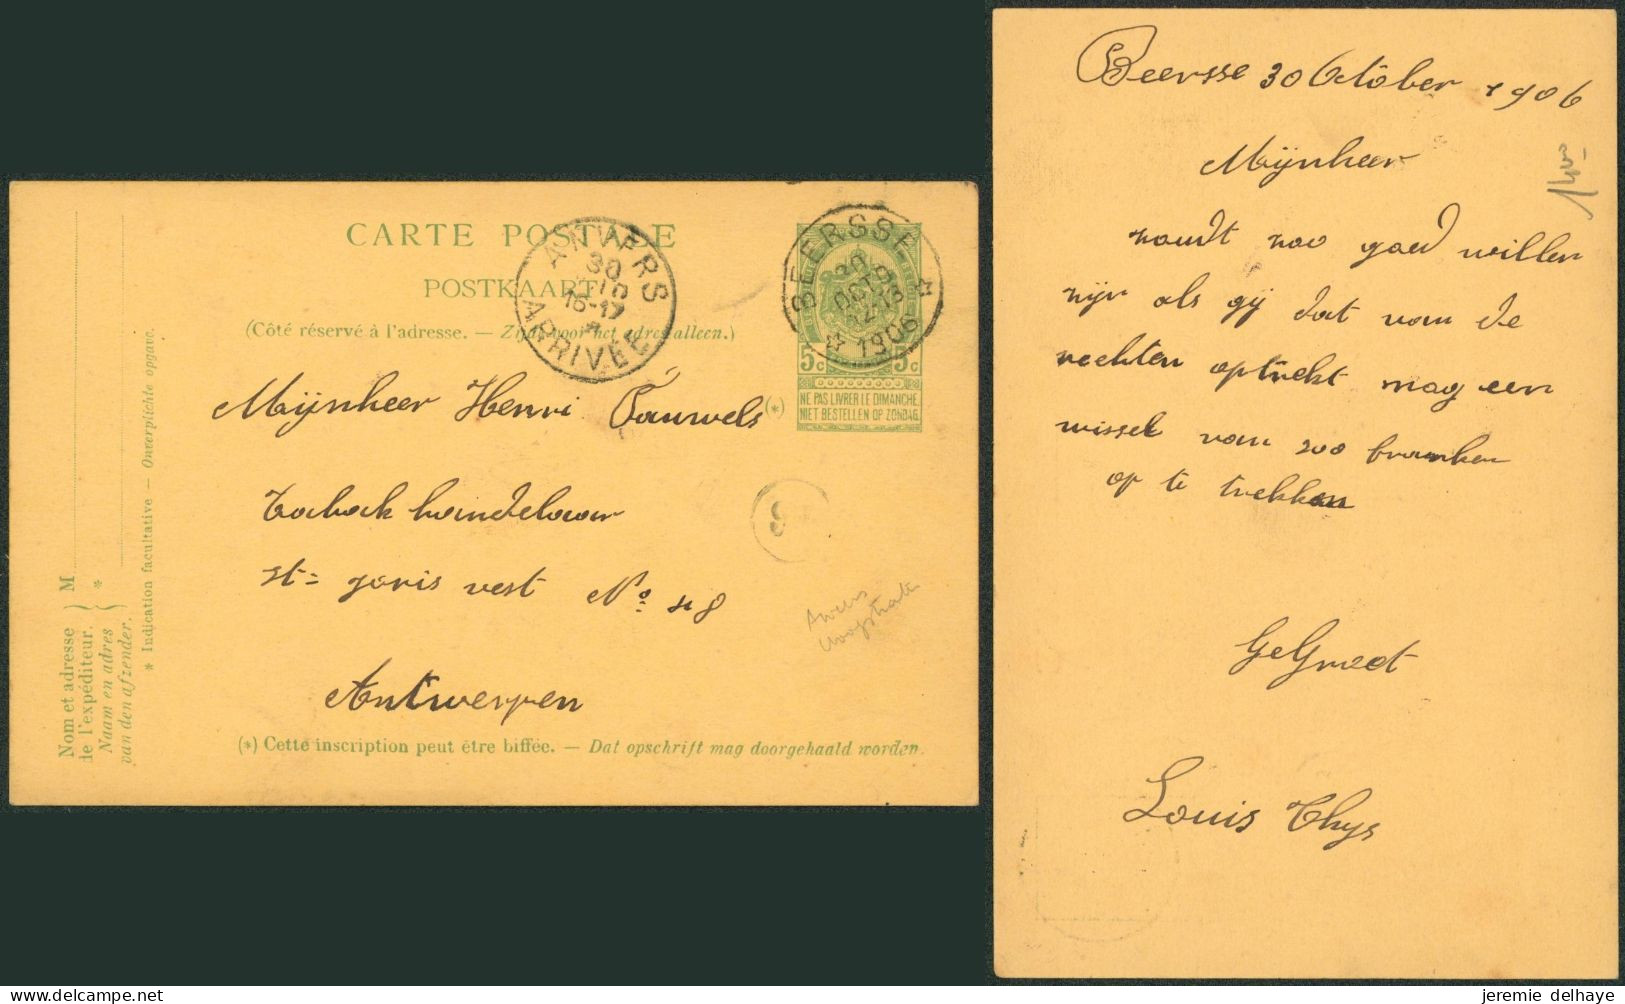 CARTE POSTALE
POSTKAART
(Côté réservé à l'adresse. — Zijde voor het adres alleen.)
ANVERS
30
16-17
ARRIVÉE
BEERSSE
30
OCT
12-13
1906
5c 5c
NE PAS LIVRER LE DIMANCHE.
NIET BESTELLEN OP ZONDAG.
Mijnheer Henri Pauwels (*)
Taback handelaar
st= joris vest No 48
Antwerpen
(*) Cette inscription peut être biffée. — Dat opschrift mag doorgehaald worden.
Nom et adresse
de l'expéditeur.
Naam en adres
van den afzender.
M
*
* Indication facultative — Onverplichte opgave.
Beersse 30 October 1906
Mijnheer
zoudt zoo goed willen
zijn als gij dat van de
rechten optrekt mag een
wissel van 200 franken
op te trekken
GeGroet
Louis Thys
jeremie delhaye